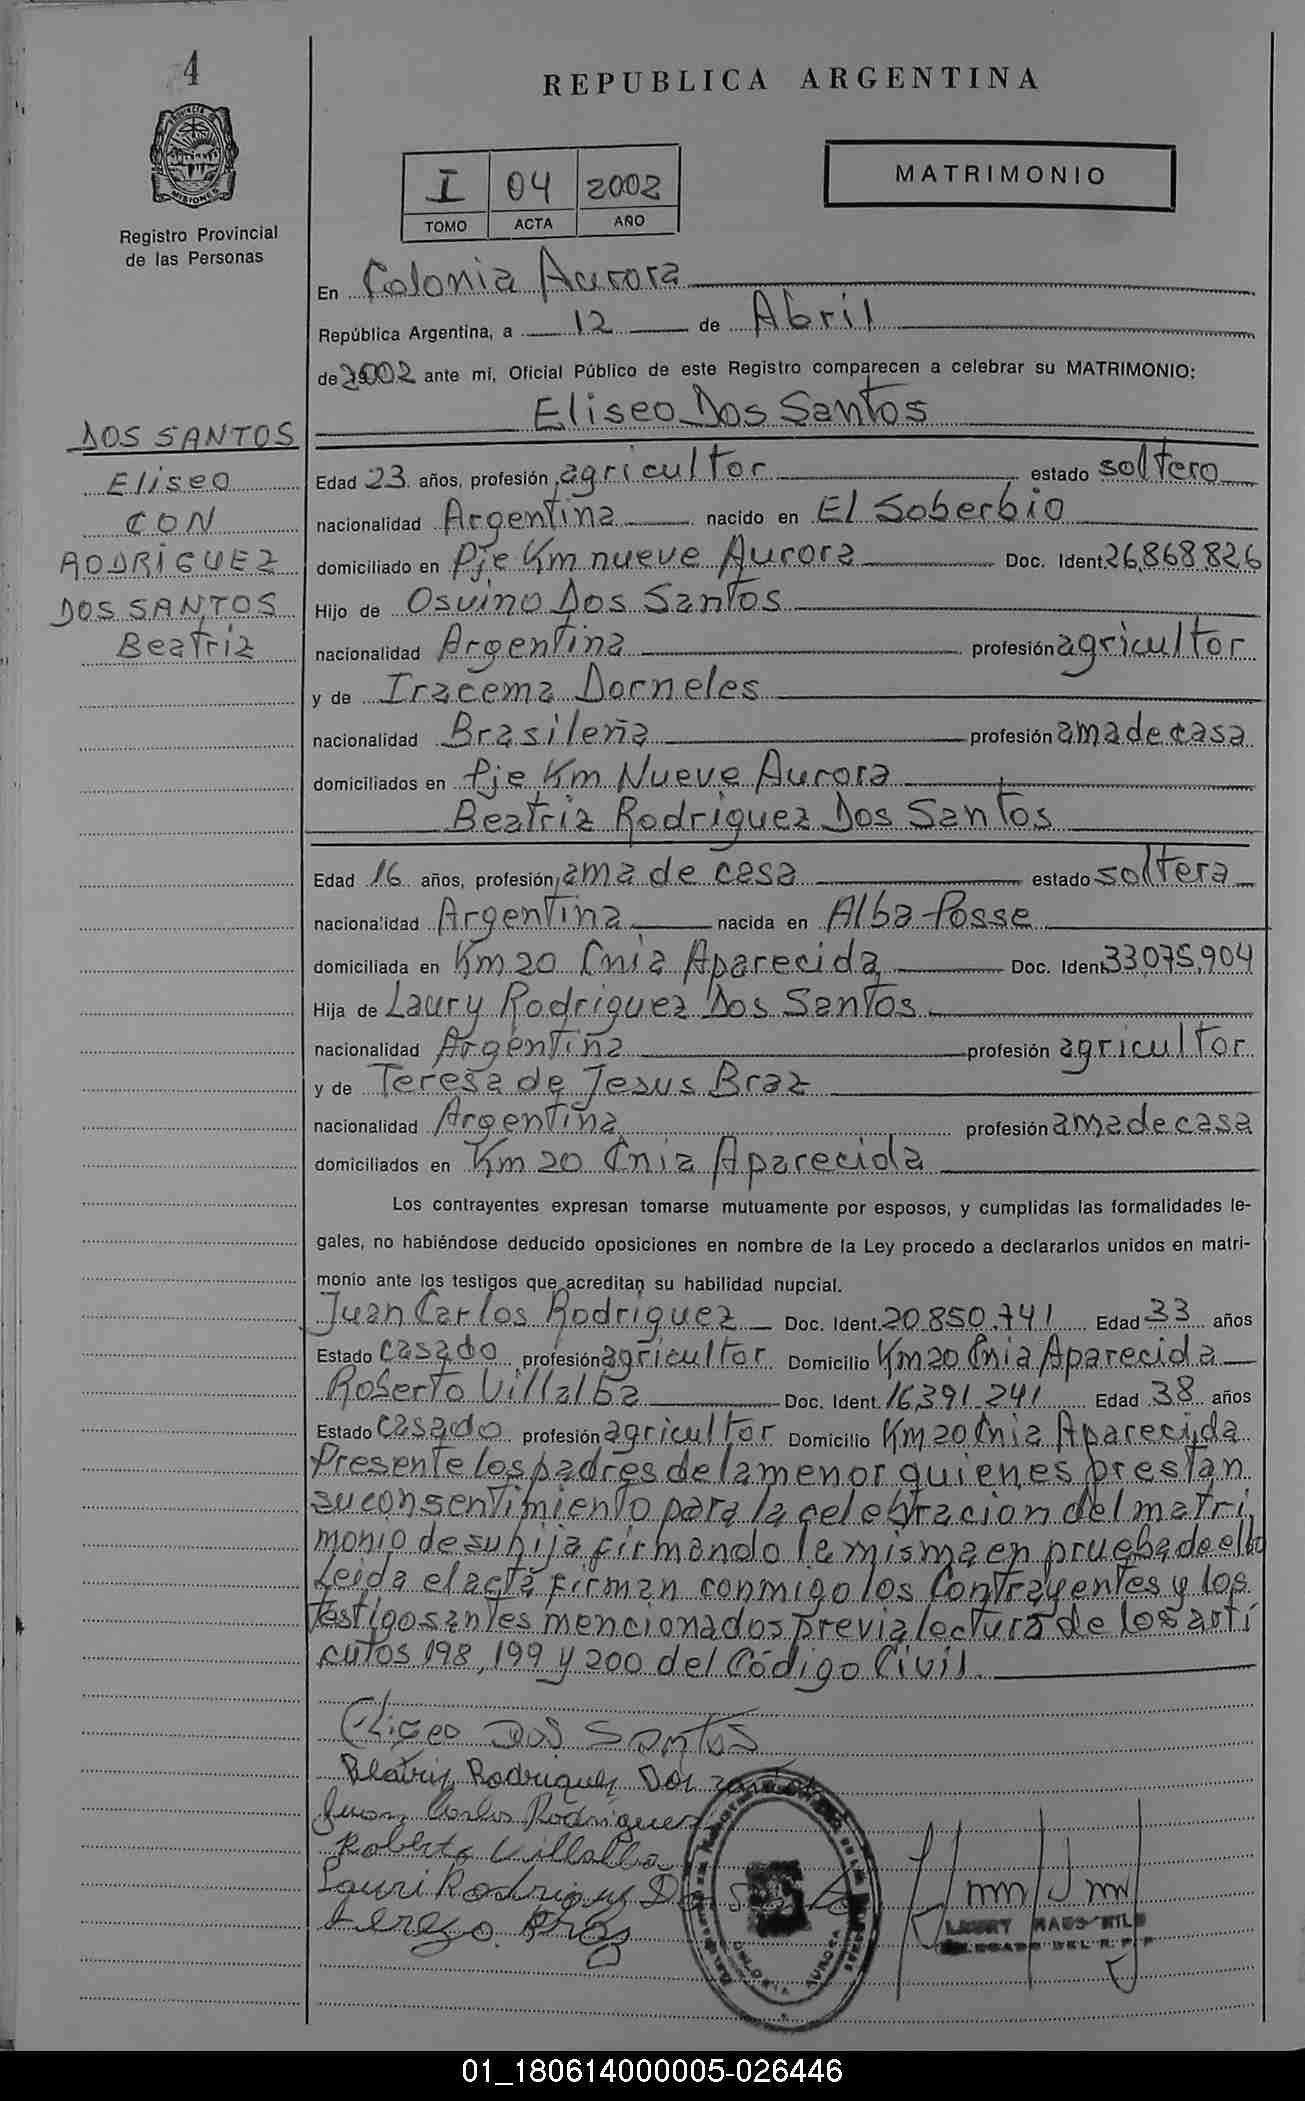 4
PROVINCIA DE
MISIONES
Registro Provincial
de las Personas
REPUBLICA ARGENTINA
I 04 2002
TOMO ACTA AÑO
MATRIMONIO
En Colonia Aurora
República Argentina, a 12 de Abril
de 2002 ante mí, Oficial Público de este Registro comparecen a celebrar su MATRIMONIO:
Eliseo Dos Santos
DOS SANTOS
Eliseo
CON
RODRIGUEZ
DOS SANTOS
Beatriz
Edad 23 años, profesión agricultor estado soltero
nacionalidad Argentina nacido en El Soberbio
domiciliado en Pje Km nueve Aurora Doc. Ident. 26,868,826
Hijo de Osvino Dos Santos
nacionalidad Argentina profesión agricultor
y de Iracema Dorneles
nacionalidad Brasileña profesión ama de casa
domiciliados en Pje Km Nueve Aurora
Beatriz Rodriguez Dos Santos
Edad 16 años, profesión ama de casa estado soltera
nacionalidad Argentina nacida en Alba Posse
domiciliada en Km 20 Cnia Aparecida Doc. Ident. 33,075,904
Hija de Laury Rodriguez Dos Santos
nacionalidad Argentina profesión agricultor
y de Teresa de Jesus Braz
nacionalidad Argentina profesión ama de casa
domiciliados en Km 20 Cnia Aparecida
Los contrayentes expresan tomarse mutuamente por esposos, y cumplidas las formalidades le-
gales, no habiéndose deducido oposiciones en nombre de la Ley procedo a declararlos unidos en matri-
monio ante los testigos que acreditan su habilidad nupcial.
Juan Carlos Rodriguez Doc. Ident. 20.850.741 Edad 33 años
Estado casado profesión agricultor Domicilio Km 20 Cnia Aparecida
Roberto Villalba Doc. Ident. 16,391.241 Edad 38 años
Estado casado profesión agricultor Domicilio Km 20 Cnia Aparecida
Presente los padres de la menor quienes prestan
su consentimiento para la celebracion del matri
monio de su hija firmando la misma en prueba de ello
Leida el acta firman conmigo los Contrayentes y los
testigos antes mencionados previa lectura de los artí
culos 198, 199 y 200 del Código Civil.
Eliseo Dos Santos
Beatriz Rodriguez Dos santos
Juan Carlos Rodriguez
Roberto Villalba
Lauri Rodriguez Dos
Tereza Braz
COLONIA AURORA
DELEGADO DEL R. P. P
01_180614000005-026446